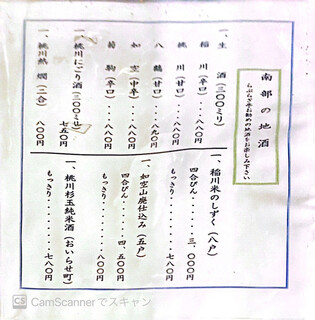 南部の地酒
らぷらざ亭お勧めの地酒をお楽しみ下さい
一、生　酒(三〇〇ミリ)
稲　川(辛口)・・・八八〇円
桃　川(甘口)・・・八八〇円
八　鶴(甘口)・・・八八〇円
如　空(中辛)・・・八八〇円
菊　駒(辛口)・・・八八〇円
一、桃川にごり酒(三〇〇ミリ)
七五〇円
一、桃川熱　燗(二合)
八〇〇円
一、稲川米のしずく(八戸)
四合びん・・・三、〇〇〇円
もっきり・・・・・・八〇〇円
一、如空山廃仕込み(五戸)
四合びん・・・四、五〇〇円
もっきり・・・・・・八〇〇円
一、桃川杉玉純米酒(おいらせ町)
もっきり・・・・・・七八〇円
CS CamScannerでスキャン